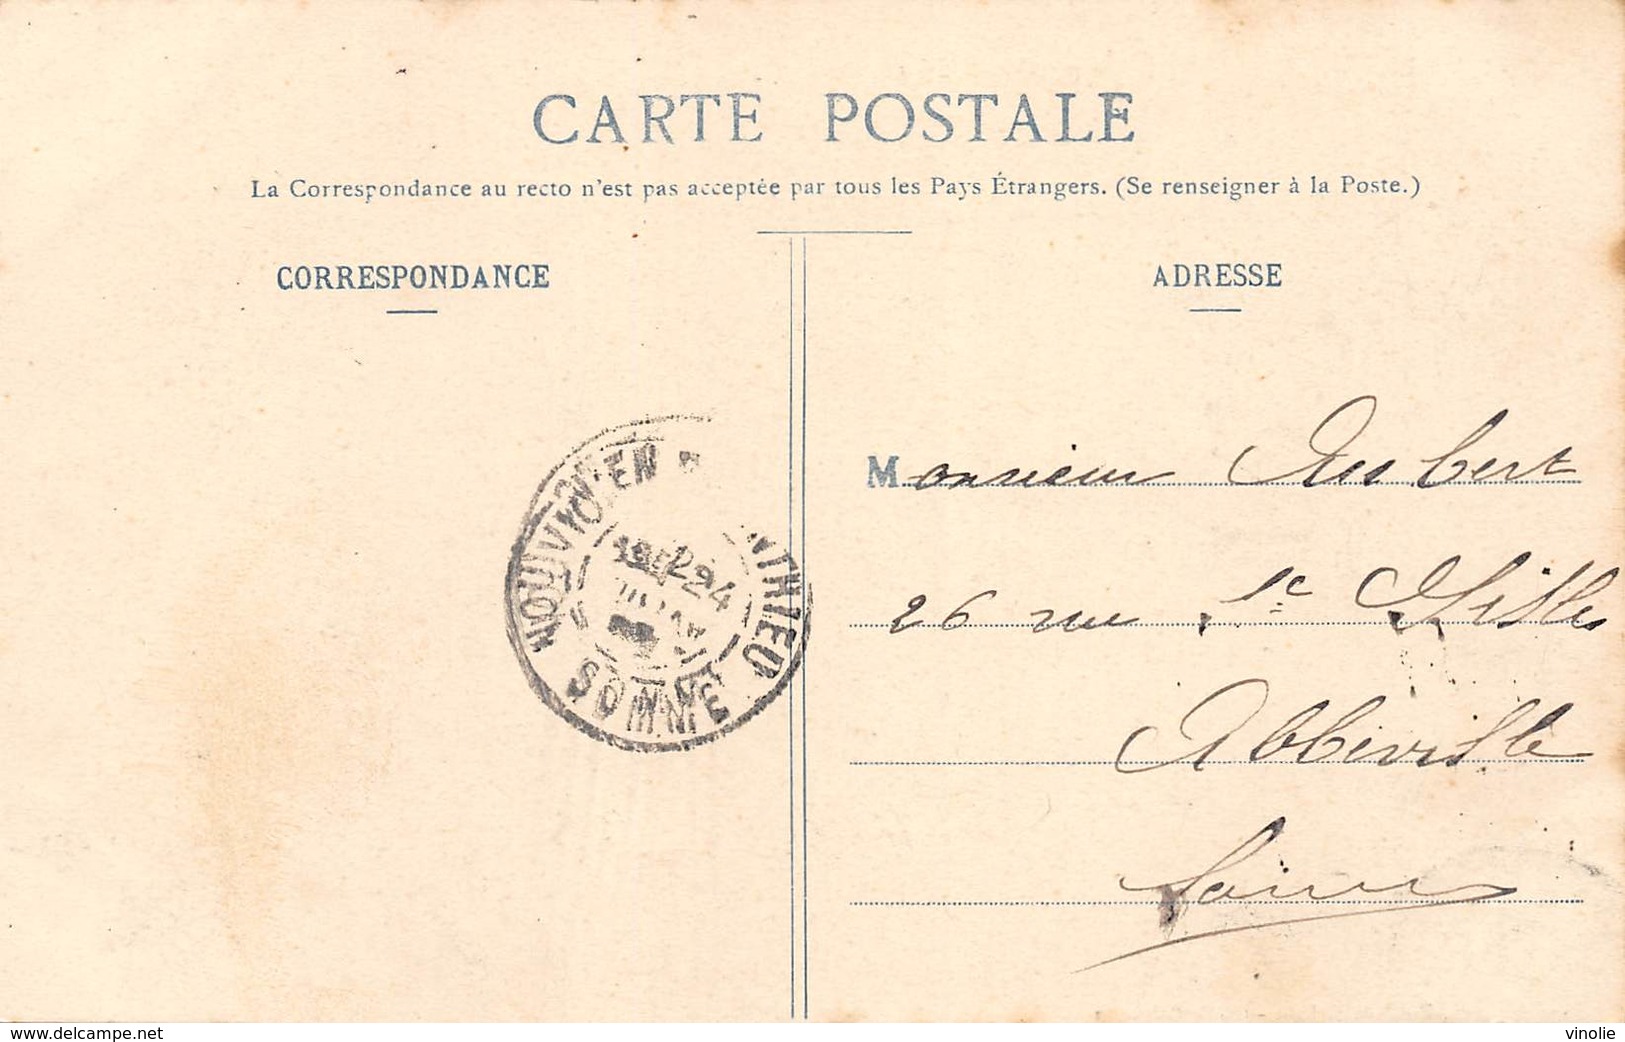 CARTE POSTALE
La Correspondance au recto n'est pas acceptée par tous les Pays Étrangers. (Se renseigner à la Poste.)
CORRESPONDANCE
ADRESSE
NOUVION-EN NTHIEU
SOMME
Monsieur Aubert
26 rue St Gilles
Abbeville
Somme
www.delcampe.net
vinolie